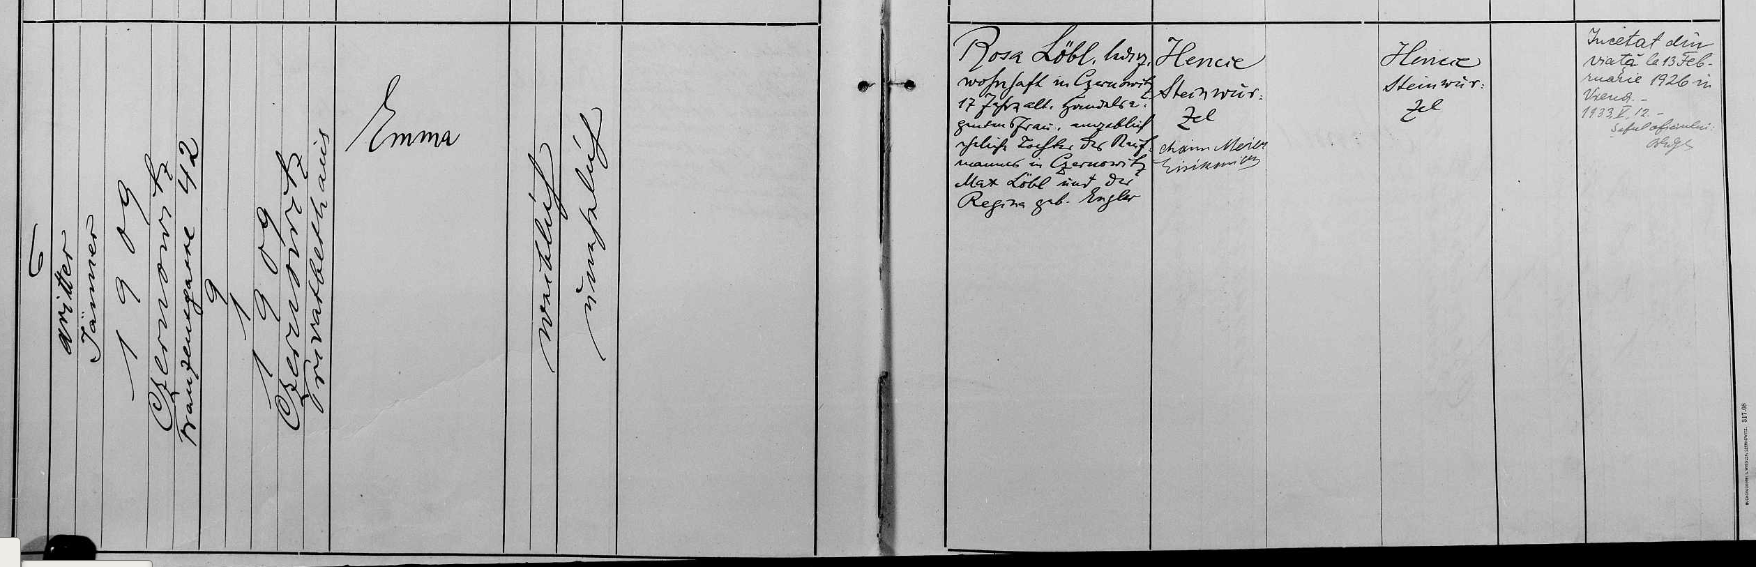 6
dritter
Jänner
1909
Czernowitz
Franzensgasse 42
9
1
1909
Czernowitz
Privatbethaus
Emma
weiblich
unehelich
Rosa Löbl,
wohnhaft in Czernowitz
17 Jahre alt, Handelsa-
genten Frau, angeblich
eheliche Tochter des Kauf-
mannes in Czernowitz
Max Löbl und der
Regina geb. Engler
Hencie
Steinwur-
zel
Chaim Meier
Hencie
Steinwur-
zel
Incetat din
viață la 13 Feb-
ruarie 1926 in
Viena.-
1933 V. 12.-